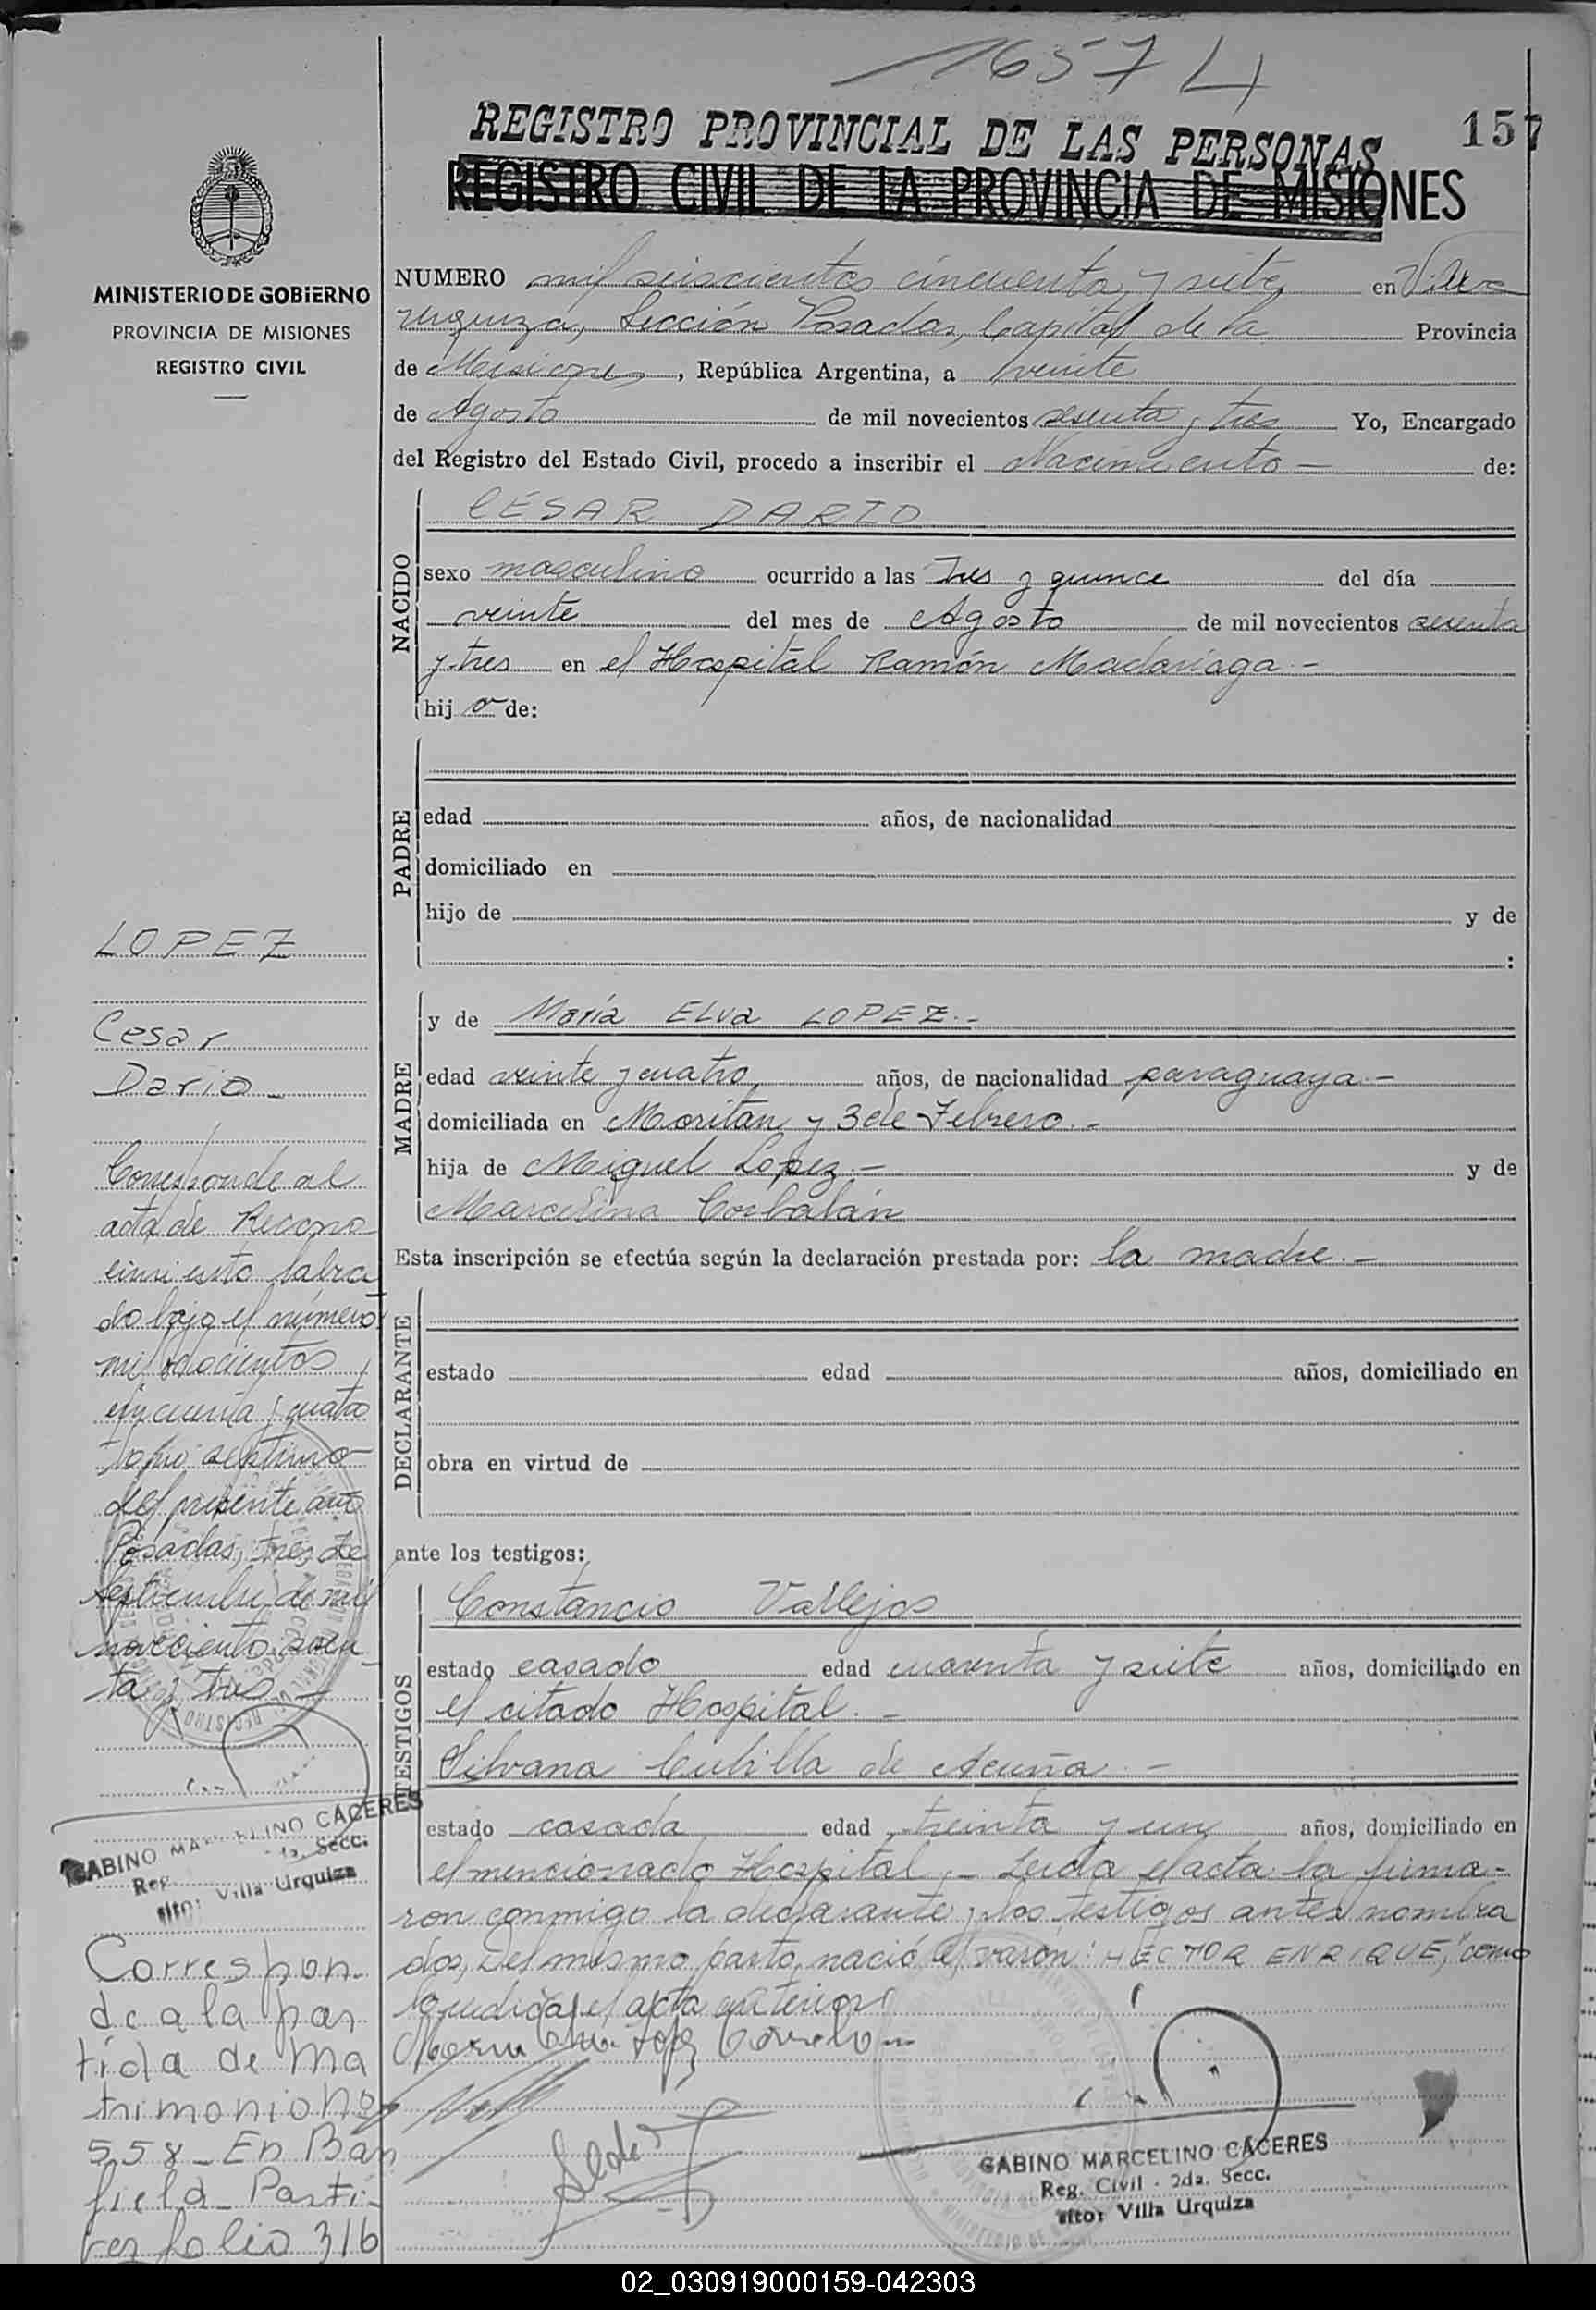 1657 L
157
REGISTRO PROVINCIAL DE LAS PERSONAS
REGISTRO CIVIL DE LA PROVINCIA DE MISIONES
MINISTERIO DE GOBIERNO
PROVINCIA DE MISIONES
REGISTRO CIVIL
NUMERO mil seiscientos cincuenta y siete en Villa
Urquiza, Sección Posadas, Capital de la Provincia
de Misiones, República Argentina, a veinte
de Agosto de mil novecientos sesenta y tres Yo, Encargado
del Registro del Estado Civil, procedo a inscribir el Nacimiento – de:
NACIDO
CÉSAR DARIO
sexo masculino ocurrido a las Tres y quince del día
veinte del mes de Agosto de mil novecientos sesenta
y tres en el Hospital Ramón Madariaga.-
hijo de:
PADRE
edad años, de nacionalidad
domiciliado en
hijo de y de
:
MADRE
y de María ELva LOPEZ.-
edad veinte y cuatro, años, de nacionalidad paraguaya.-
domiciliada en Moritan y 3 de Febrero.-
hija de Miguel López.- y de
Marcelina Corbalán
Esta inscripción se efectúa según la declaración prestada por: la madre.-
DECLARANTE
estado edad años, domiciliado en
obra en virtud de
ante los testigos:
TESTIGOS
Constancio Vallejos
estado casado edad cuarenta y siete años, domiciliado en
el citado Hospital.-
Silvana Cubilla de Acuña.-
estado casada edad treinta y un años, domiciliado en
el mencionado Hospital.- Leida el acta la firma-
ron conmigo la declarante y los testigos antes nombra
dos, Del mismo parto, nació el varón: "HECTOR ENRIQUE", como
lo indica el acta anterior
GABINO MARCELINO CACERES
Reg. Civil - 2da. Secc.
sito: Villa Urquiza
LOPEZ
Cesar
Dario
Corresponde al
acta de Recono
cimiento labra
do bajo el número
mil doscientos
cincuenta y cuatro
tomo septimo
del presente año
Posadas, tres de
Septiembre de mil
novecientos sesen
ta y tres –
GABINO MARCELINO CACERES
Reg. Secc.
sito: Villa Urquiza
Correspon-
de a la par
tida de Ma
trimonio no
558 - En Ban
field - Parti-
folio 316
02_030919000159-042303